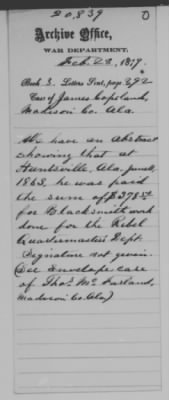 20,839
Archive Office,
WAR DEPARTMENT,
Feb. 28, 1877.
Book 3. Letters Sent, page 292
Case of James Copeland,
Madison Co. Ala.
We have an Abstract
showing that at
Huntsville, Ala, June
1863, he was paid
the sum of $378
for Blacksmith work
done for the Rebel
Quartermaster's Dept.
Signature not given.
(See Envelope case
of Thos. McFarland,
Madison Co. Ala)